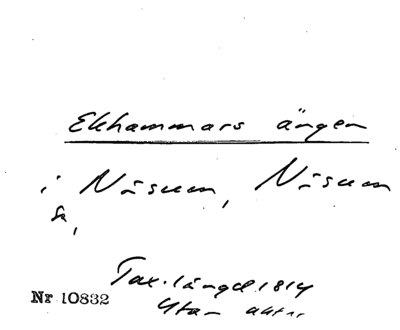 Ekhammars ängen
i Näsum, Näsum
sn,
Tax.längd 1814
Nr 10832
Utan aktnr